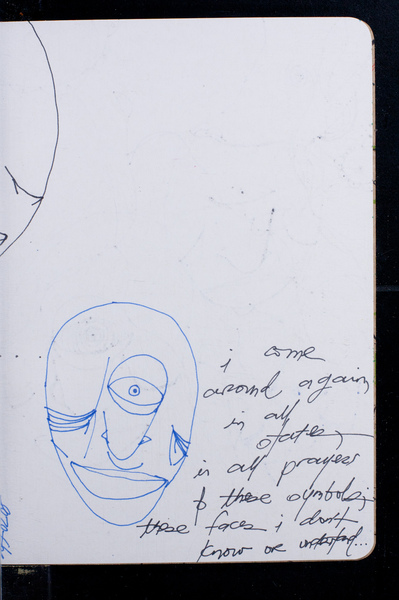 i come
around again
in all
states,
in all prayers
& these symbols,
these faces i don't
know or understand...